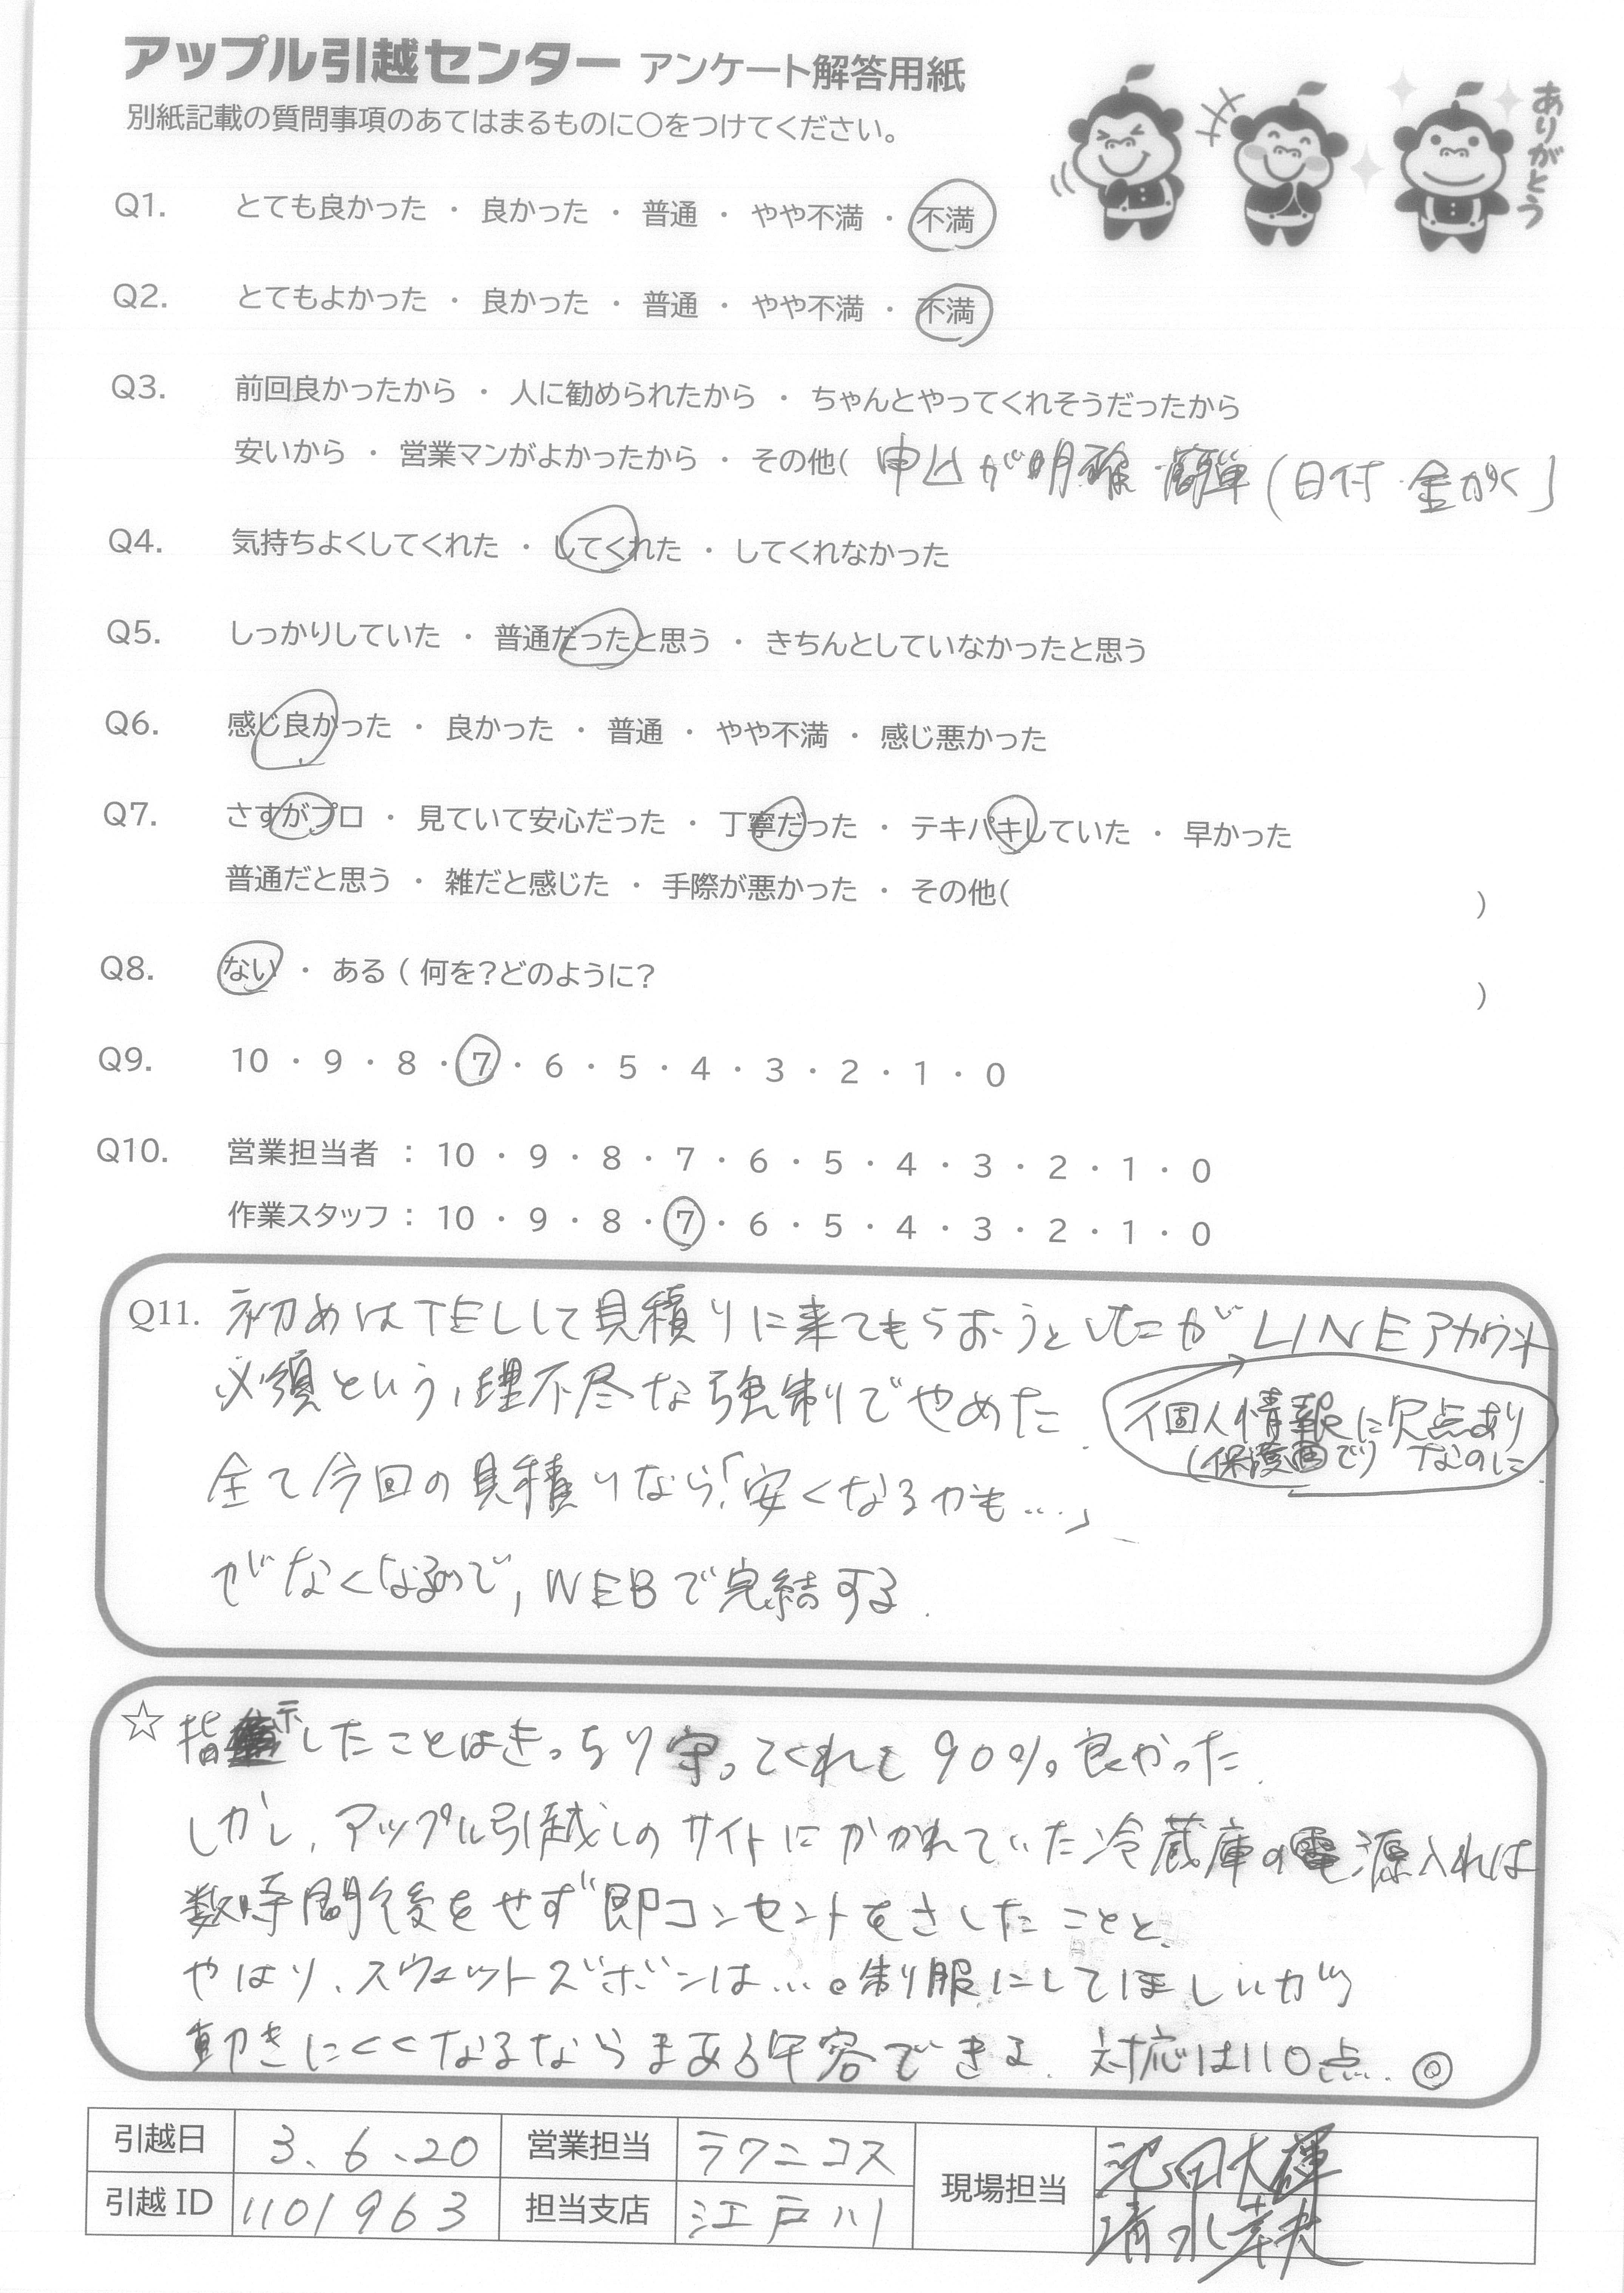 アップル引越センター アンケート解答用紙
別紙記載の質問事項のあてはまるものに○をつけてください。
ありがとう
Q1. とても良かった ・ 良かった ・ 普通 ・ やや不満 ・ 不満
Q2. とてもよかった ・ 良かった ・ 普通 ・ やや不満 ・ 不満
Q3. 前回良かったから ・ 人に勧められたから ・ ちゃんとやってくれそうだったから
安いから ・ 営業マンがよかったから ・ その他( 申込が明確 簡単 (日付・金がく)
Q4. 気持ちよくしてくれた ・ してくれた ・ してくれなかった
Q5. しっかりしていた ・ 普通だったと思う ・ きちんとしていなかったと思う
Q6. 感じ良かった ・ 良かった ・ 普通 ・ やや不満 ・ 感じ悪かった
Q7. さすがプロ ・ 見ていて安心だった ・ 丁寧だった ・ テキパキしていた ・ 早かった
普通だと思う ・ 雑だと感じた ・ 手際が悪かった ・ その他( )
Q8. ない ・ ある ( 何を?どのように? )
Q9. 10 ・ 9 ・ 8 ・ 7 ・ 6 ・ 5 ・ 4 ・ 3 ・ 2 ・ 1 ・ 0
Q10. 営業担当者 : 10 ・ 9 ・ 8 ・ 7 ・ 6 ・ 5 ・ 4 ・ 3 ・ 2 ・ 1 ・ 0
作業スタッフ : 10 ・ 9 ・ 8 ・ 7 ・ 6 ・ 5 ・ 4 ・ 3 ・ 2 ・ 1 ・ 0
Q11. 初めはTELして見積りに来てもらおうとしたが LINEアカウント
必須という、理不尽な強制でやめた.
個人情報に欠点あり
(保護面で) なのに
全て今回の見積りなら「安くなるかも…」
がなくなるので, WEBで完結する.
☆ 指示したことはきっちり守ってくれて90%良かった.
しかし、アップル引越しのサイトにかかれていた冷蔵庫の電源入れは
数時間後をせず即コンセントをさしたことと、
やはり、スウェットズボンは…。制服にしてほしいが
動きにくくなるならまあ許容できる. 対応は110点. ◎
引越日 3.6.20 営業担当 ラクニコス 現場担当 池田大輝
引越 ID 1101963 担当支店 江戸川 清水幸夫